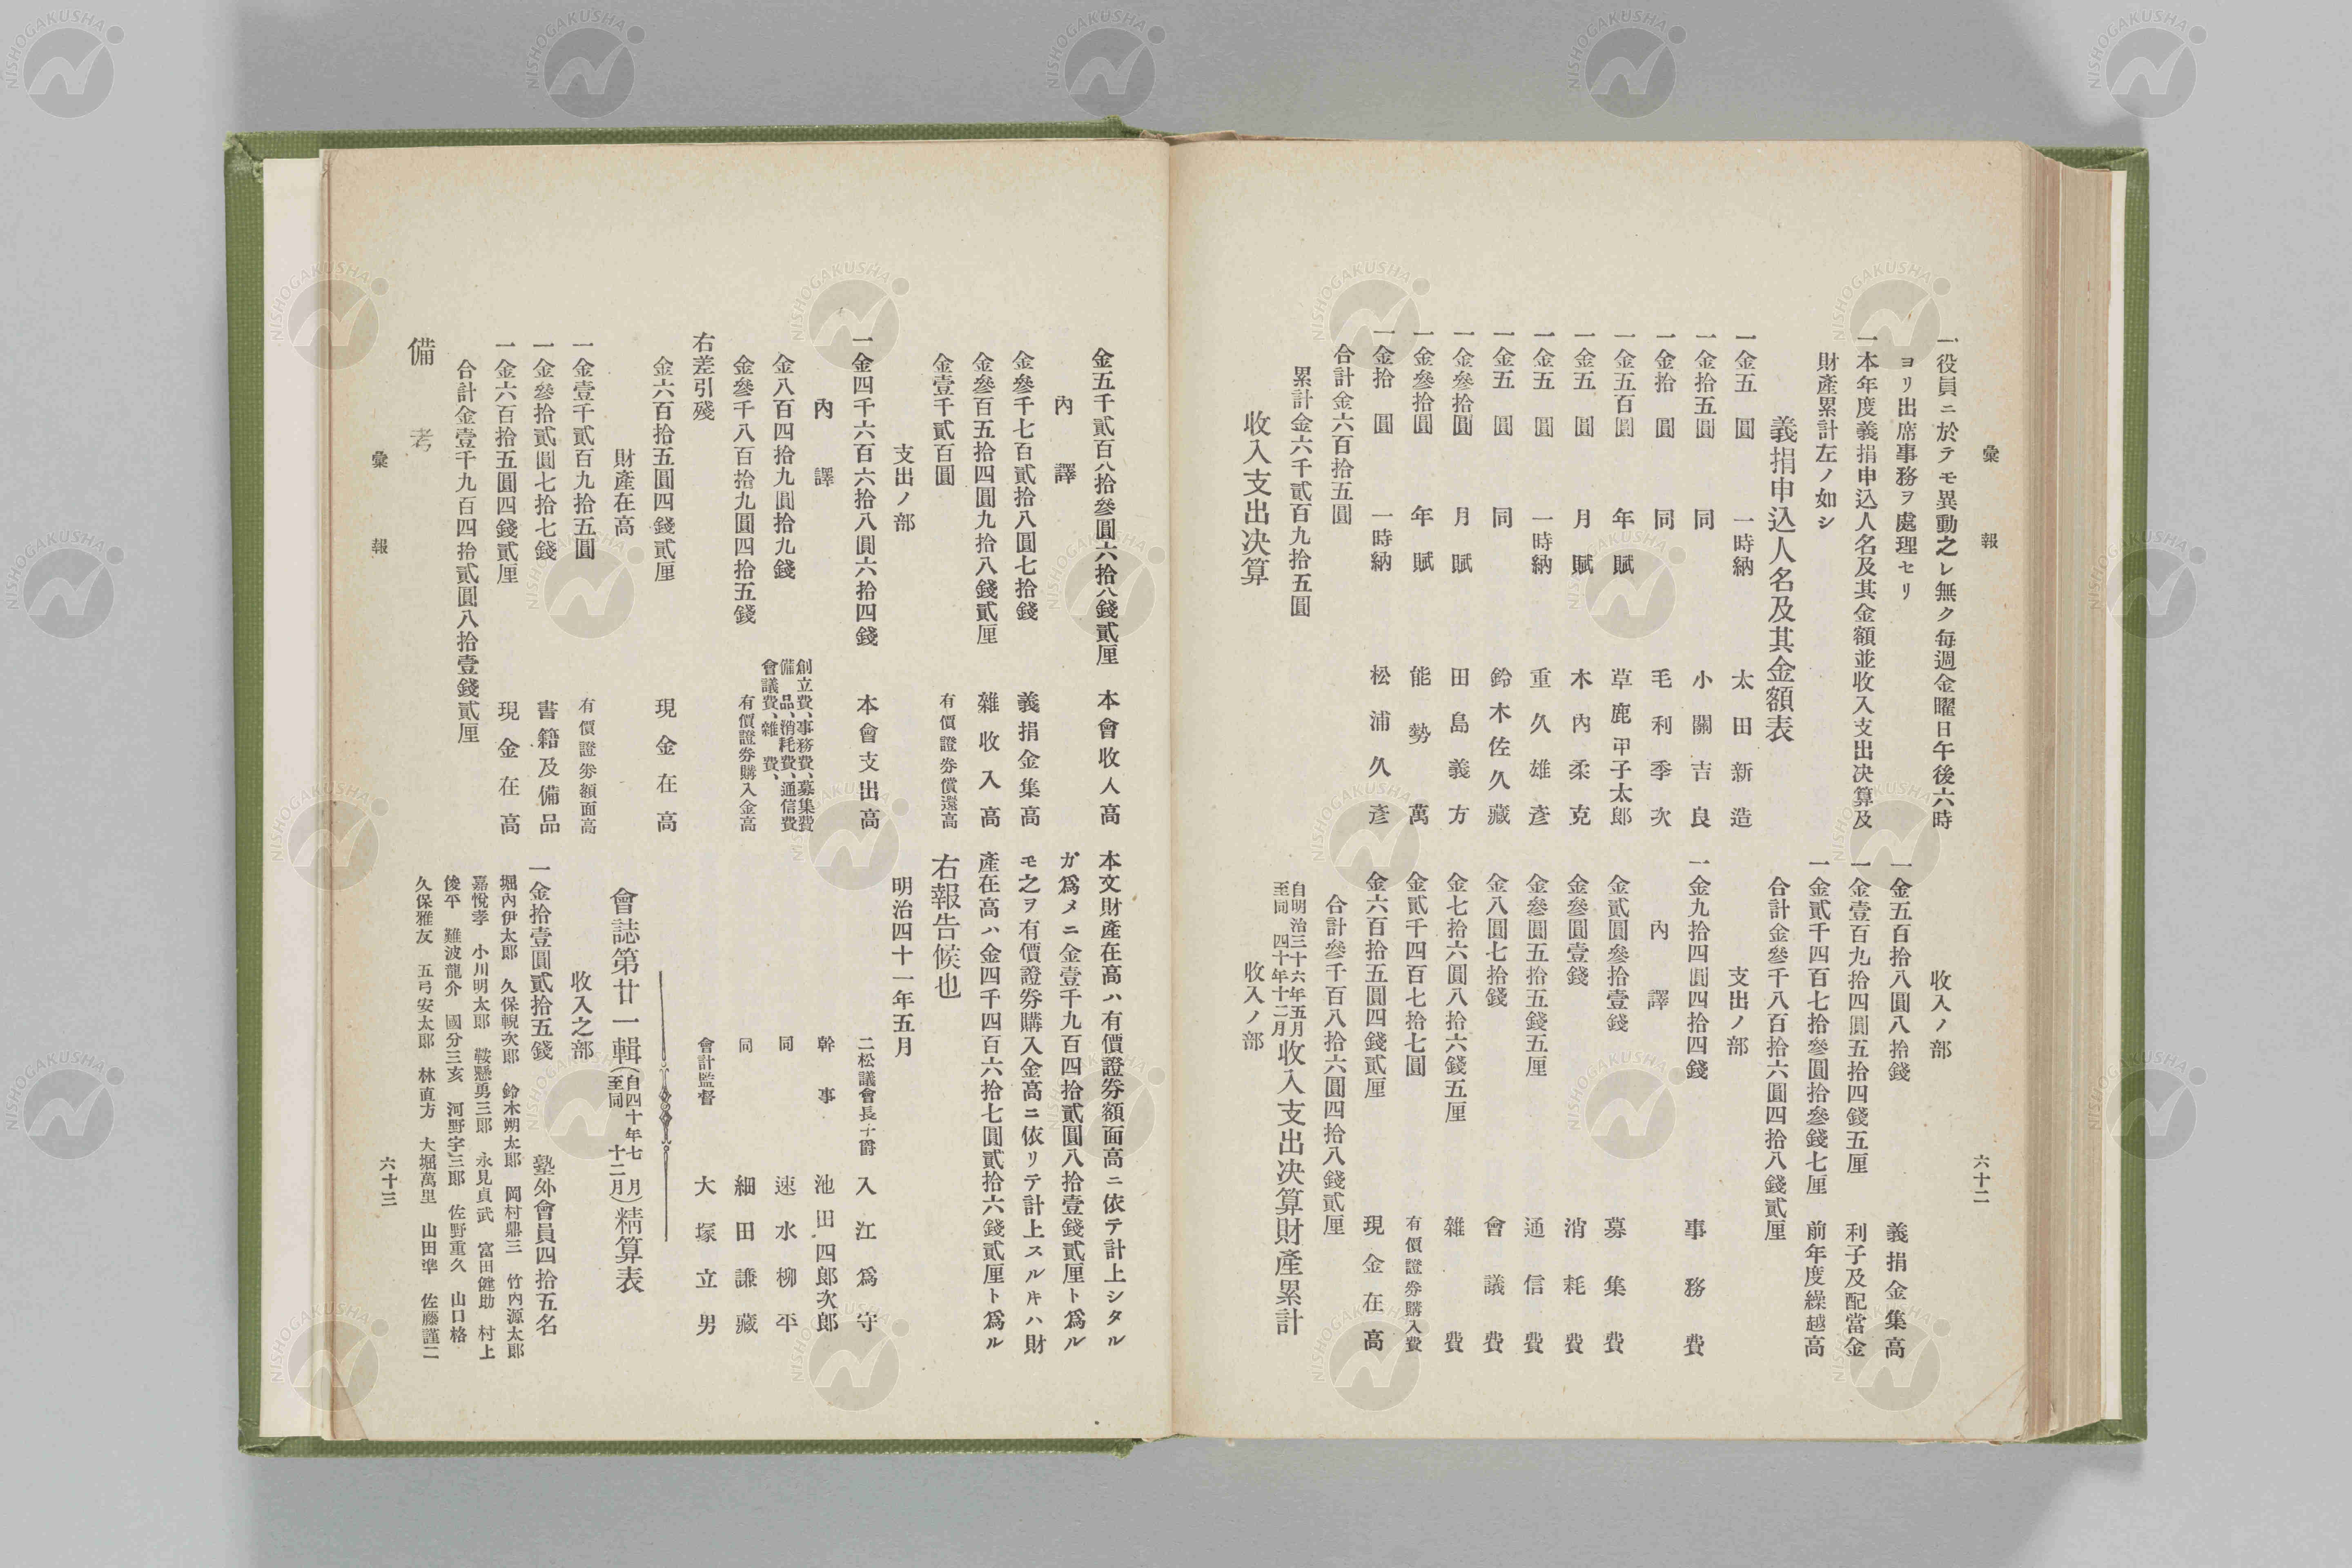 彙報
六十二
一、役員ニ於テモ異動之レ無ク每週金曜日午後六時
ヨリ出席事務ヲ處理セリ
一本年度義捐申込人名及其金額並收入支出決算及
財產累計左ノ如シ
義捐申込人名及其金額表
一金五圓 一時納 太田新造
一金拾五圓 同 小關吉良
一金拾圓 同 毛利季次
一金五百圓 年賦 草鹿甲子太郎
一金五圓 月賦 木內柔克
一金五圓 一時納 重久雄彥
一金五圓 同 鈴木佐久藏
一金參拾圓 月賦 田島義方
一金參拾圓 年賦 能勢萬
一金拾圓 一時納 松浦久彥
合計金六百拾五圓
累計金六千貳百九拾五圓
收入支出決算
收入ノ部
一金五百拾八圓八拾錢 義捐金集高
一金壹百九拾四圓五拾四錢五厘 利子及配當金
一金貳千四百七拾參圓拾參錢七厘 前年度繰越高
合計金參千八百拾六圓四拾八錢貳厘
支出ノ部
一金九拾四圓四拾四錢 事務費
內譯
金貳圓參拾壹錢 募集費
金參圓壹錢 消耗費
金參圓五拾五錢五厘 通信費
金八圓七拾錢 會議費
金七拾六圓八拾六錢五厘 雜費
金貳千四百七拾七圓 有價證券購入費
金六百拾五圓四錢貳厘 現金在高
合計參千百八拾六圓四拾八錢貳厘
自明治三十六年五月
至同四十年十二月收入支出決算財產累計
收入ノ部
金五千貳百八拾參圓六拾八錢貳厘 本會收入高
內譯
金參千七百貳拾八圓七拾錢 義捐金集高
金參百五拾四圓九拾八錢貳厘 雜收入高
金壹千貳百圓 有價證券償還高
支出ノ部
一金四千六百六拾八圓六拾四錢 本會支出高
內譯
金八百四拾九圓拾九錢 創立費、事務費、募集費
備品、消耗費、通信費
會議費、雜費、
金參千八百拾九圓四拾五錢 有價證券購入金高
右差引殘
金六百拾五圓四錢貳厘 現金在高
財產在高
一金壹千貳百九拾五圓 有價證券額面高
一金參拾貳圓七拾七錢 書籍及備品
一金六百拾五圓四錢貳厘 現金在高
合計金壹千九百四拾貳圓八拾壹錢貳厘
備考
本文財產在高ハ有價證券額面高ニ依テ計上シタル
ガ爲メニ金壹千九百四拾貳圓八拾壹錢貳厘ト爲ル
モ之ヲ有價證券購入金高ニ依リテ計上スルキハ財
產在高ハ金四千四百六拾七圓貳拾六錢貳厘ト爲ル
右報告候也
明治四十一年五月
二松議會長子爵 入江爲守
幹事 池田四郎次郎
同 速水柳平
同 細田謙藏
會計監督 大塚立男
會誌第廿一輯(自四十年七月
至同十二月)精算表
收入之部
一金拾壹圓貳拾五錢 塾外會員四拾五名
堀內伊太郎 久保輗次郎 鈴木朔太郎 岡村鼎三 竹內源太郎
嘉悅孝 小川明太郎 鞍懸勇三郎 永見貞武 富田健助 村上
俊平 難波龍介 國分三亥 河野宇三郎 佐野重久 山口格
久保雅友 五弓安太郎 林直方 大堀萬里 山田準 佐藤謹二
彙報
六十三